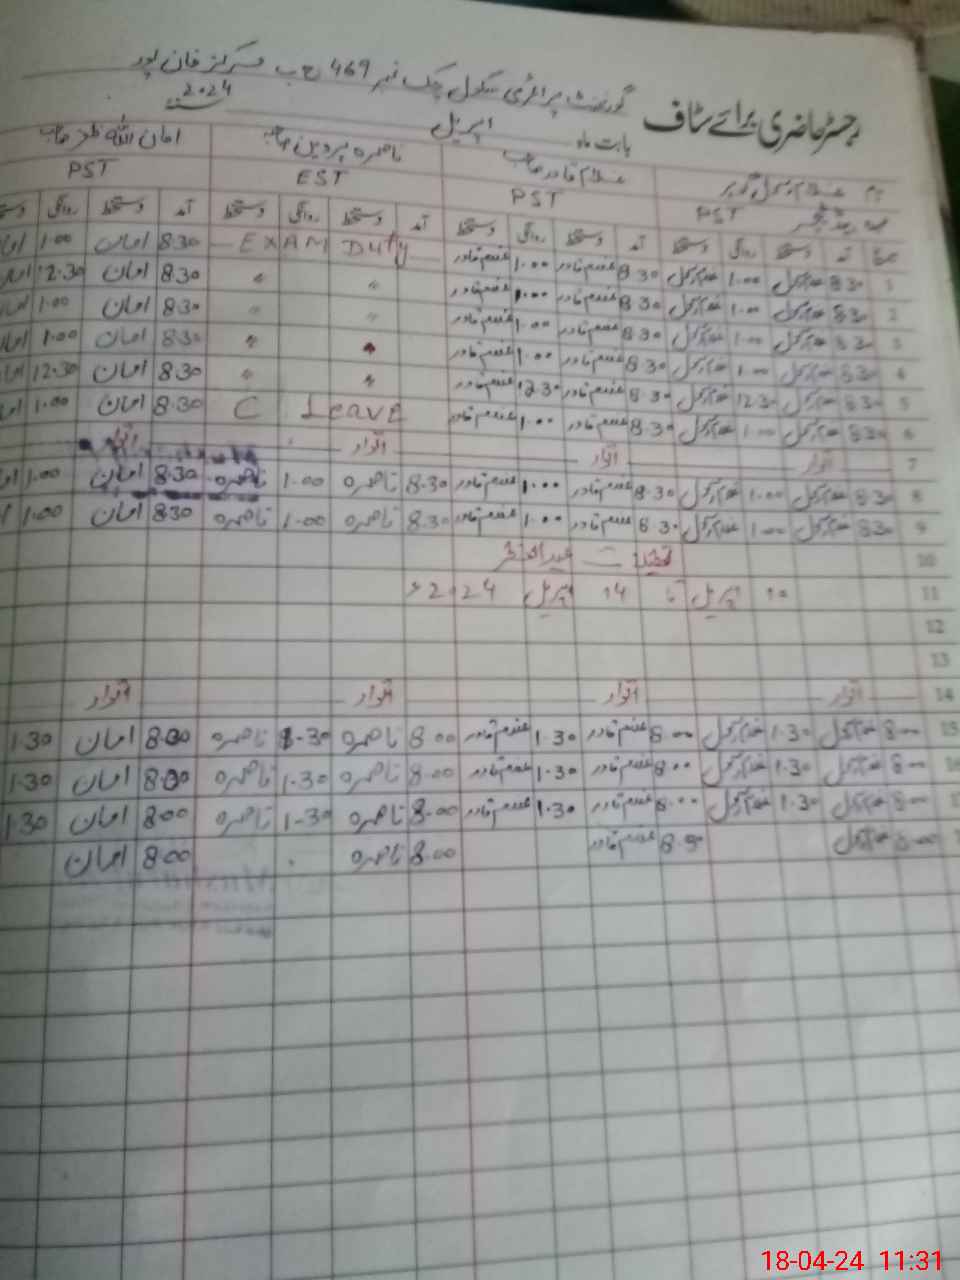 گورنمنٹ پرائمری سکول چک نمبر 469 گ ب مرکز خان پور
رجسٹر حاضری برائے سٹاف
بابت ماہ اپریل 2024
نام غلام رسول غلام قادر صاحب ناصرہ پروین صاحبہ امان اللہ ظفر صاحب
عہدہ PST PST EST PST
تاریخ آمد دستخط روانگی دستخط آمد دستخط روانگی دستخط آمد دستخط روانگی دستخط آمد دستخط روانگی
1 8.30 1.00 8.30 غلام قادر 1.00 غلام قادر EXAM Duty 8.30 امان 1.00
2 8.30 1.00 8.30 غلام قادر 1.00 غلام قادر " " 8.30 امان 12.30
3 8.30 1.00 8.30 غلام قادر 1.00 غلام قادر " " 8.30 امان 1.00
4 8.30 1.00 8.30 غلام قادر 1.00 غلام قادر " " 8.30 امان 1.00
5 8.30 12.30 8.30 غلام قادر 12.30 غلام قادر " " 8.30 امان 12.30
6 8.30 1.00 8.30 غلام قادر 1.00 غلام قادر C Leave 8.30 امان 1.00
7 اتوار اتوار اتوار اتوار
8 8.30 1.00 8.30 غلام قادر 1.00 غلام قادر 8.30 ناصرہ 1.00 ناصرہ 8.30 امان 1.00
9 8.30 1.00 8.30 غلام قادر 1.00 غلام قادر 8.30 ناصرہ 1.00 ناصرہ 8.30 امان 1.00
10 تعطیلات عیدالفطر
11 10 اپریل تا 14 اپریل 2024ء
12
13
14 اتوار اتوار اتوار اتوار
15 8.00 1.30 8.00 غلام قادر 1.30 غلام قادر 8.00 ناصرہ 1.30 ناصرہ 8.00 امان 1.30
16 8.00 1.30 8.00 غلام قادر 1.30 غلام قادر 8.00 ناصرہ 1.30 ناصرہ 8.00 امان 1.30
8.00 1.30 8.00 غلام قادر 1.30 غلام قادر 8.00 ناصرہ 1.30 ناصرہ 8.00 امان 1.30
8.00 غلام قادر 8.00 ناصرہ 8.00 امان
18-04-24 11:31